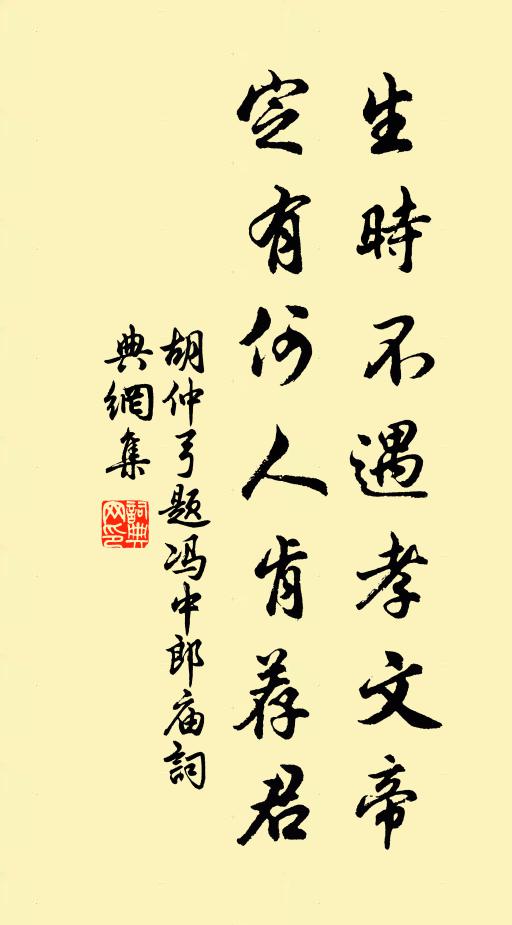 生時不遇孝文帝
定有何人肯荐君
胡仲弓題冯中郎庙詞
典網集
詞典网印